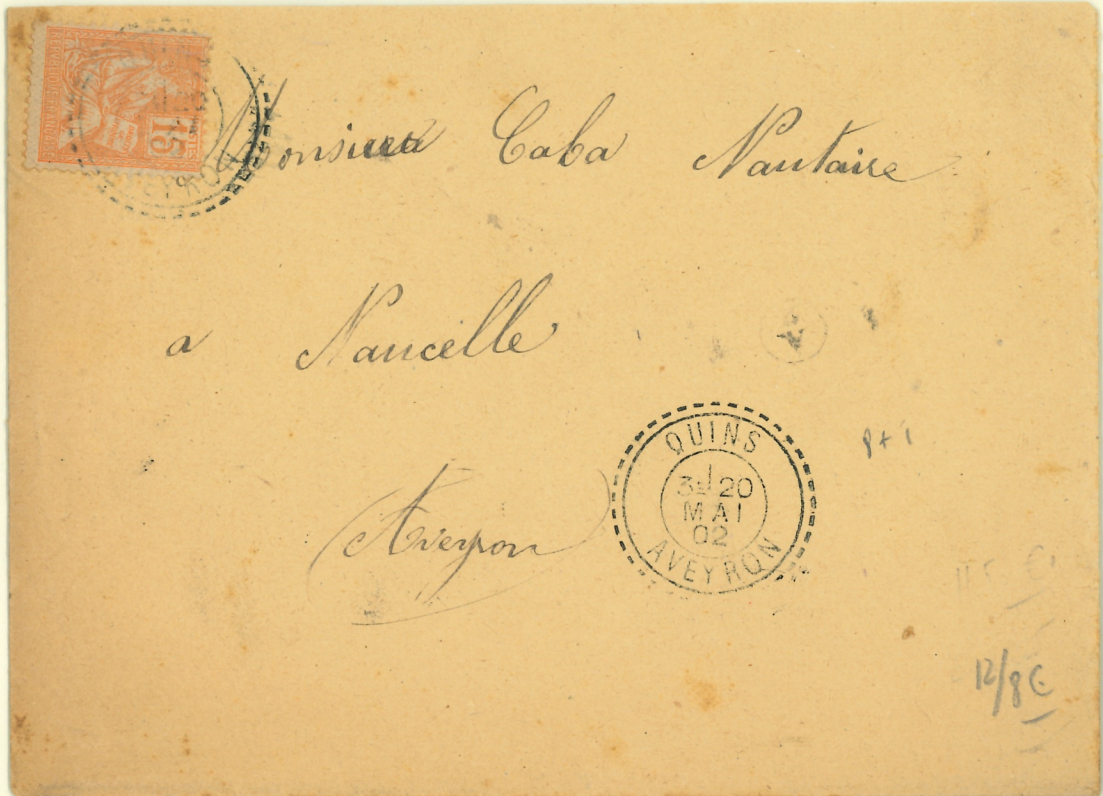 15
AVEYRON
Monsieur Caba Nautaire
a Naucelle
Aveyron
QUINS
20
MAI
02
AVEYRON
P+1
12/8 €